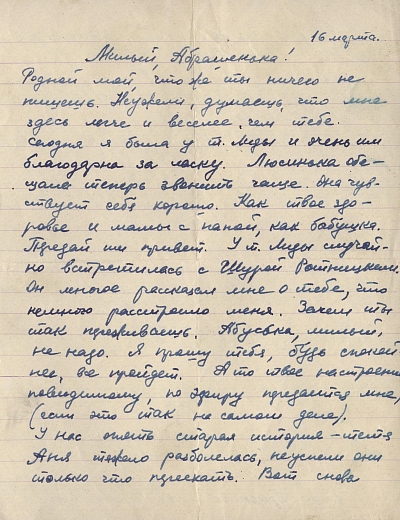 16 марта.
Милый Абрашенька!
Родной мой, что же ты ничего не
пишешь. Неужели, думаешь, что мне
здесь легче и веселее, чем тебе.
Сегодня я была у т. Лиды и очень им
благодарна за ласку. Люсинька обе-
щала теперь звонить чаще. Она чув-
ствует себя хорошо. Как твое здо-
ровье и мамы с папой, как бабушка.
Передай им привет. У т. Лиды случай-
но встретилась с Шурой Ротницким.
Он многое рассказал мне о тебе, что
немного расстроило меня. Зачем ты
так переживаешь. Абуська, милый,
не надо. Я прошу тебя, будь спокой-
нее, все пройдет. А то твое настроени
повидимому, по эфиру передается мне,
(если это так на самом деле).
У нас опять старая история - тетя
Аня тяжело разболелась, неуспели они
только что переехать. Вот снова